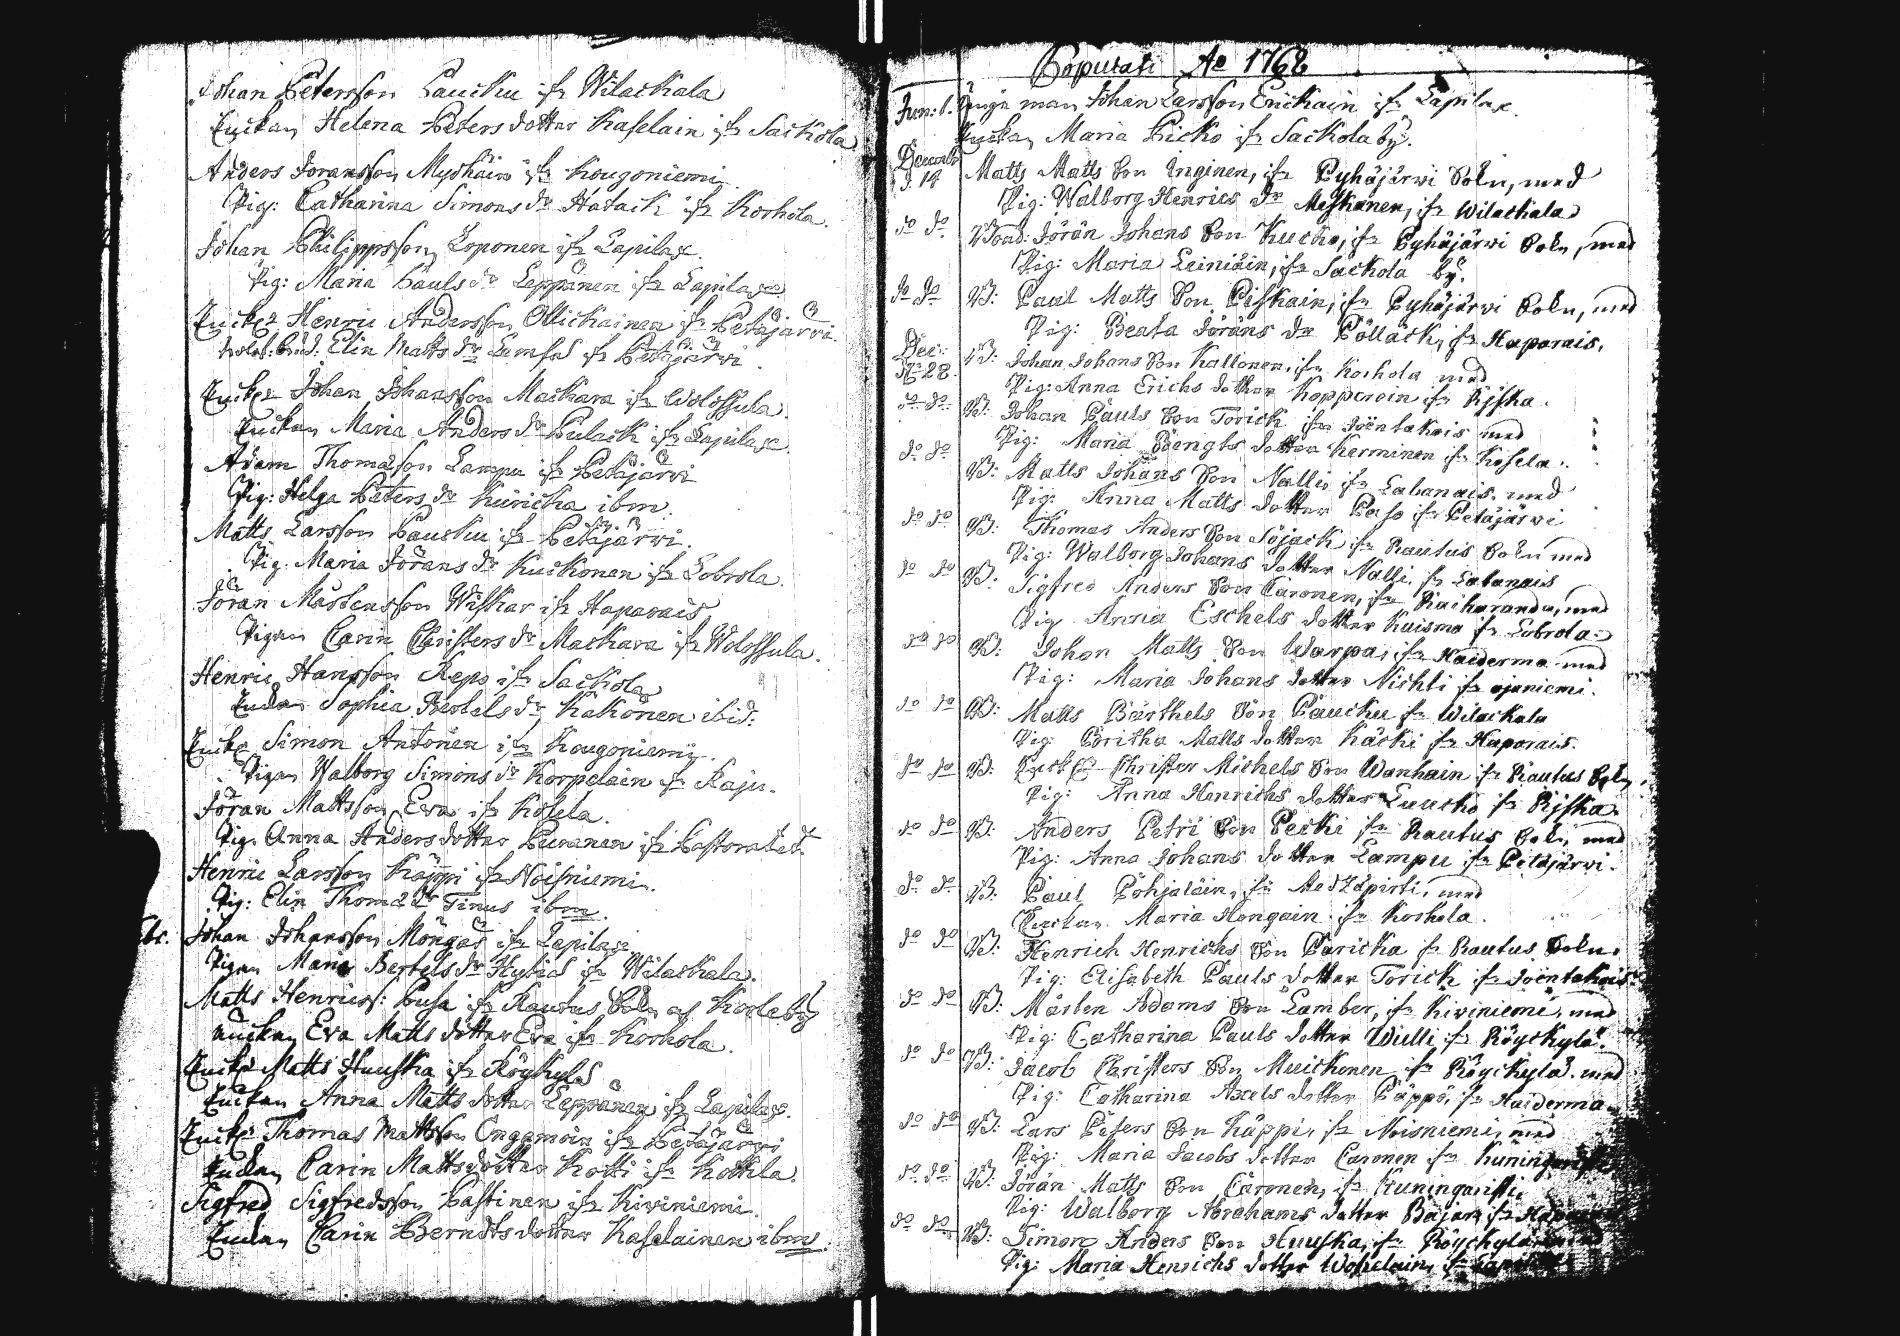 Johan Petersson Paucku ifr Wilackala
Enckan Helena Peters dotter Kaselain ifr Sackola
Anders Joransson Myöhäin ifr Kougoniemi
Pig: Catharina Simons dr Hatack ifr Korhola.
Johan Philippsson Loponen ifr Lapilax.
Pig: Maria Pauls dr Leppänen ifr Lapilax
Enckl. Henric Andersson Ollickainen ifr Petäjärvi.
Elin Matts dr Lemsal ifr Petäjärvi.
Enckl. Johan Johansson Mackara ifr Wolossula.
Enckan Maria Anders dr Pulack ifr Lapilax.
Adam Thomasson Lampu ifr Petäjärvi
Pig: Helga Peters dr Kuricka ibm.
Matts Larsson Paucku ifr Petäjärvi.
Pig: Maria Jörans dr Kuckonen ifr Lobrola.
Jöran Mårtensson Wiskar ifr Haparais
Pigan Carin Christers dr Mackara ifr Wolossula.
Henric Hansson Repo ifr Sackola
Enckan Sophia Bertels dr Kakonen ibid:
Enckl Simon Antonen ifr Kougoniemi.
Pigan Walborg Simons dr Korpelain ifr Raju.
Jöran Mattsson Eva ifr Kosela.
Pig. Anna Anders dotter Puranen ifr Pastoratet.
Henric Larsson Käppi ifr Noisniemi.
Pig: Elin Thomæ dr Tinus ibm.
Johan Johansson Möngäs ifr Lapilax
Pigan Maria Bertels dr Hytiäs ifr Wilackala.
Matts Henricss: Pusa ifr Rautus Sokn
Enckan Eva Matts dotter Eva ifr Korhola.
Enckl Matts Huuska ifr Röykylä
Enckan Anna Matts dotter Leppänen ifr Lapilax.
Enckl. Thomas Mattsson Ongamoin ifr Petäjärvi
Enckan Carin Matts dotter Kotti ifr Kottila.
Sigfred Sigfredsson Pastinen ifr Kiviniemi.
Enckan Carin Berndts dotter Kaselainen ibm.
Copulati Ao 1768
Jun: 6. Unga man Johan Larsson Enckain ifr Lapilax.
Enckan Maria Picko ifr Sackola by.
Decemb d. 18 Matts Matts Son Inginen, ifr Pyhäjärwi Sokn, med
Pig: Walborg Henrics dr Meskanen, ifr Wilackala
do do Jörän Johans Son Kucko, ifr Pyhäjärwi Sokn, med
Pig: Maria Leiniäin, ifr Sackola by.
do do B: Paul Matts Son Piskain, ifr Pyhäjärwi Sokn, med
Pig: Beata Jöräns dr Pölläck, ifr Haparais.
Dec: d. 28. B: Johan Johans Son Kallonen, ifr Korhola med
Pig: Anna Erichs dotter Kopperoin ifr Rijska.
do do B: Johan Pauls Son Torick ifr Joentakais med
Pig: Maria Bengts dotter Kerminen ifr Kosela.
do do B: Matts Johans Son Nalli ifr Labanais. med
Pig: Anna Matts dotter Paso ifr Petäjärvi
do do B: Thomas Anders Son Söjack ifr Rautus Sokn med
Pig: Walborg Johans dotter Nalli, ifr Labanais
do do B: Sigfred Anders Son Caronen, ifr Raiharanda, med
Pig Anna Eschels dotter Kuisma ifr Lobrola
do do B: Johan Matts Son Warpa, ifr Haiderma med
Pig: Maria Johans dotter Nichti ifr ojaniemi.
do do B: Matts Barthels Son Paucku ifr Wilackala
Pig: Göritha Matts dotter Käcki ifr Haparais.
do do B: Christer Michels Son Wanhain ifr Rautus Sokn,
Pig: Anna Henrichs dotter Luucko ifr Rijska.
do do B: Anders Petri Son Pecki ifr Rautus Sokn, med
Pig: Anna Johans dotter Lampu ifr Petäjärwi.
do do B: Paul Pohjaläin, ifr Medzäpirti, med
Enckan Maria Hongain ifr Korhola.
do do B: Henrich Henrichs Son Paricka ifr Rautus Sokn.
Pig: Elisabeth Pauls dotter Torick ifr Joentakais
do do B: Mårten Adams Son Lamber, ifr Kiviniemi, med
Pig: Catharina Pauls dotter Wulli ifr Röyckylä.
do do B: Jacob Christers Son Muickonen ifr Röyckylä. med
Pig: Catharina Axels dotter Päppö, ifr Haiderma
do do B: Lars Peters Son Käppi, ifr Noisniemi, med
Pig: Maria Jacobs dotter Caronen ifr Kuningaristi
do do B: Jöran Matts Son Caronen, ifr Kuningaristi,
Pig: Walborg Abrahams dotter Bäjar ifr
do do B: Simon Anders Son Huuska, ifr Röyckylä
Pig: Maria Henrichs dotter Wospelain, ifr